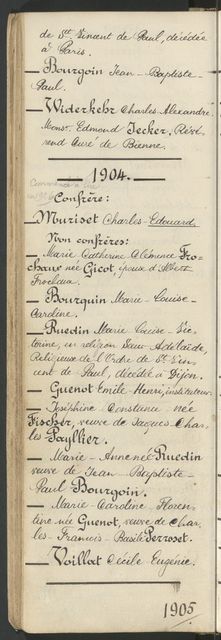 de St Vincent de Paul, décédée
à Paris.
— Bourgoin Jean-Baptiste-
Paul.
— Widerkehr Charles-Alexandre
Mons. Edmond Jecker, Révé-
rend Curé de Bienne.
— 1904. —
Confrère:
— Mouriset Charles-Edouard.
Non confrères:
— Marie Catherine Clémence Fro-
chaux née Gicot, épouse d'Albert
Frochaux.
— Bourquin Marie-Louise-
Cardine.
— Ruedin Marie Louise-Vic-
torine, en religion Sœur Adélaïde,
Religieuse de l'Ordre de St Vin-
cent de Paul, décédée à Dijon.
— Guenot Emile-Henri, instituteur.
— Joséphine-Constance née
Fischer, veuve de Jacques Char-
les Payllier.
— Marie-Annenée Ruedin
veuve de Jean-Baptiste-
Paul Bourgoin.
— Marie-Cardine-Floren-
tine née Guenot, veuve de Char-
les-Francois-Basile Perroset.
— Voillat Cécile Eugénie.
1905